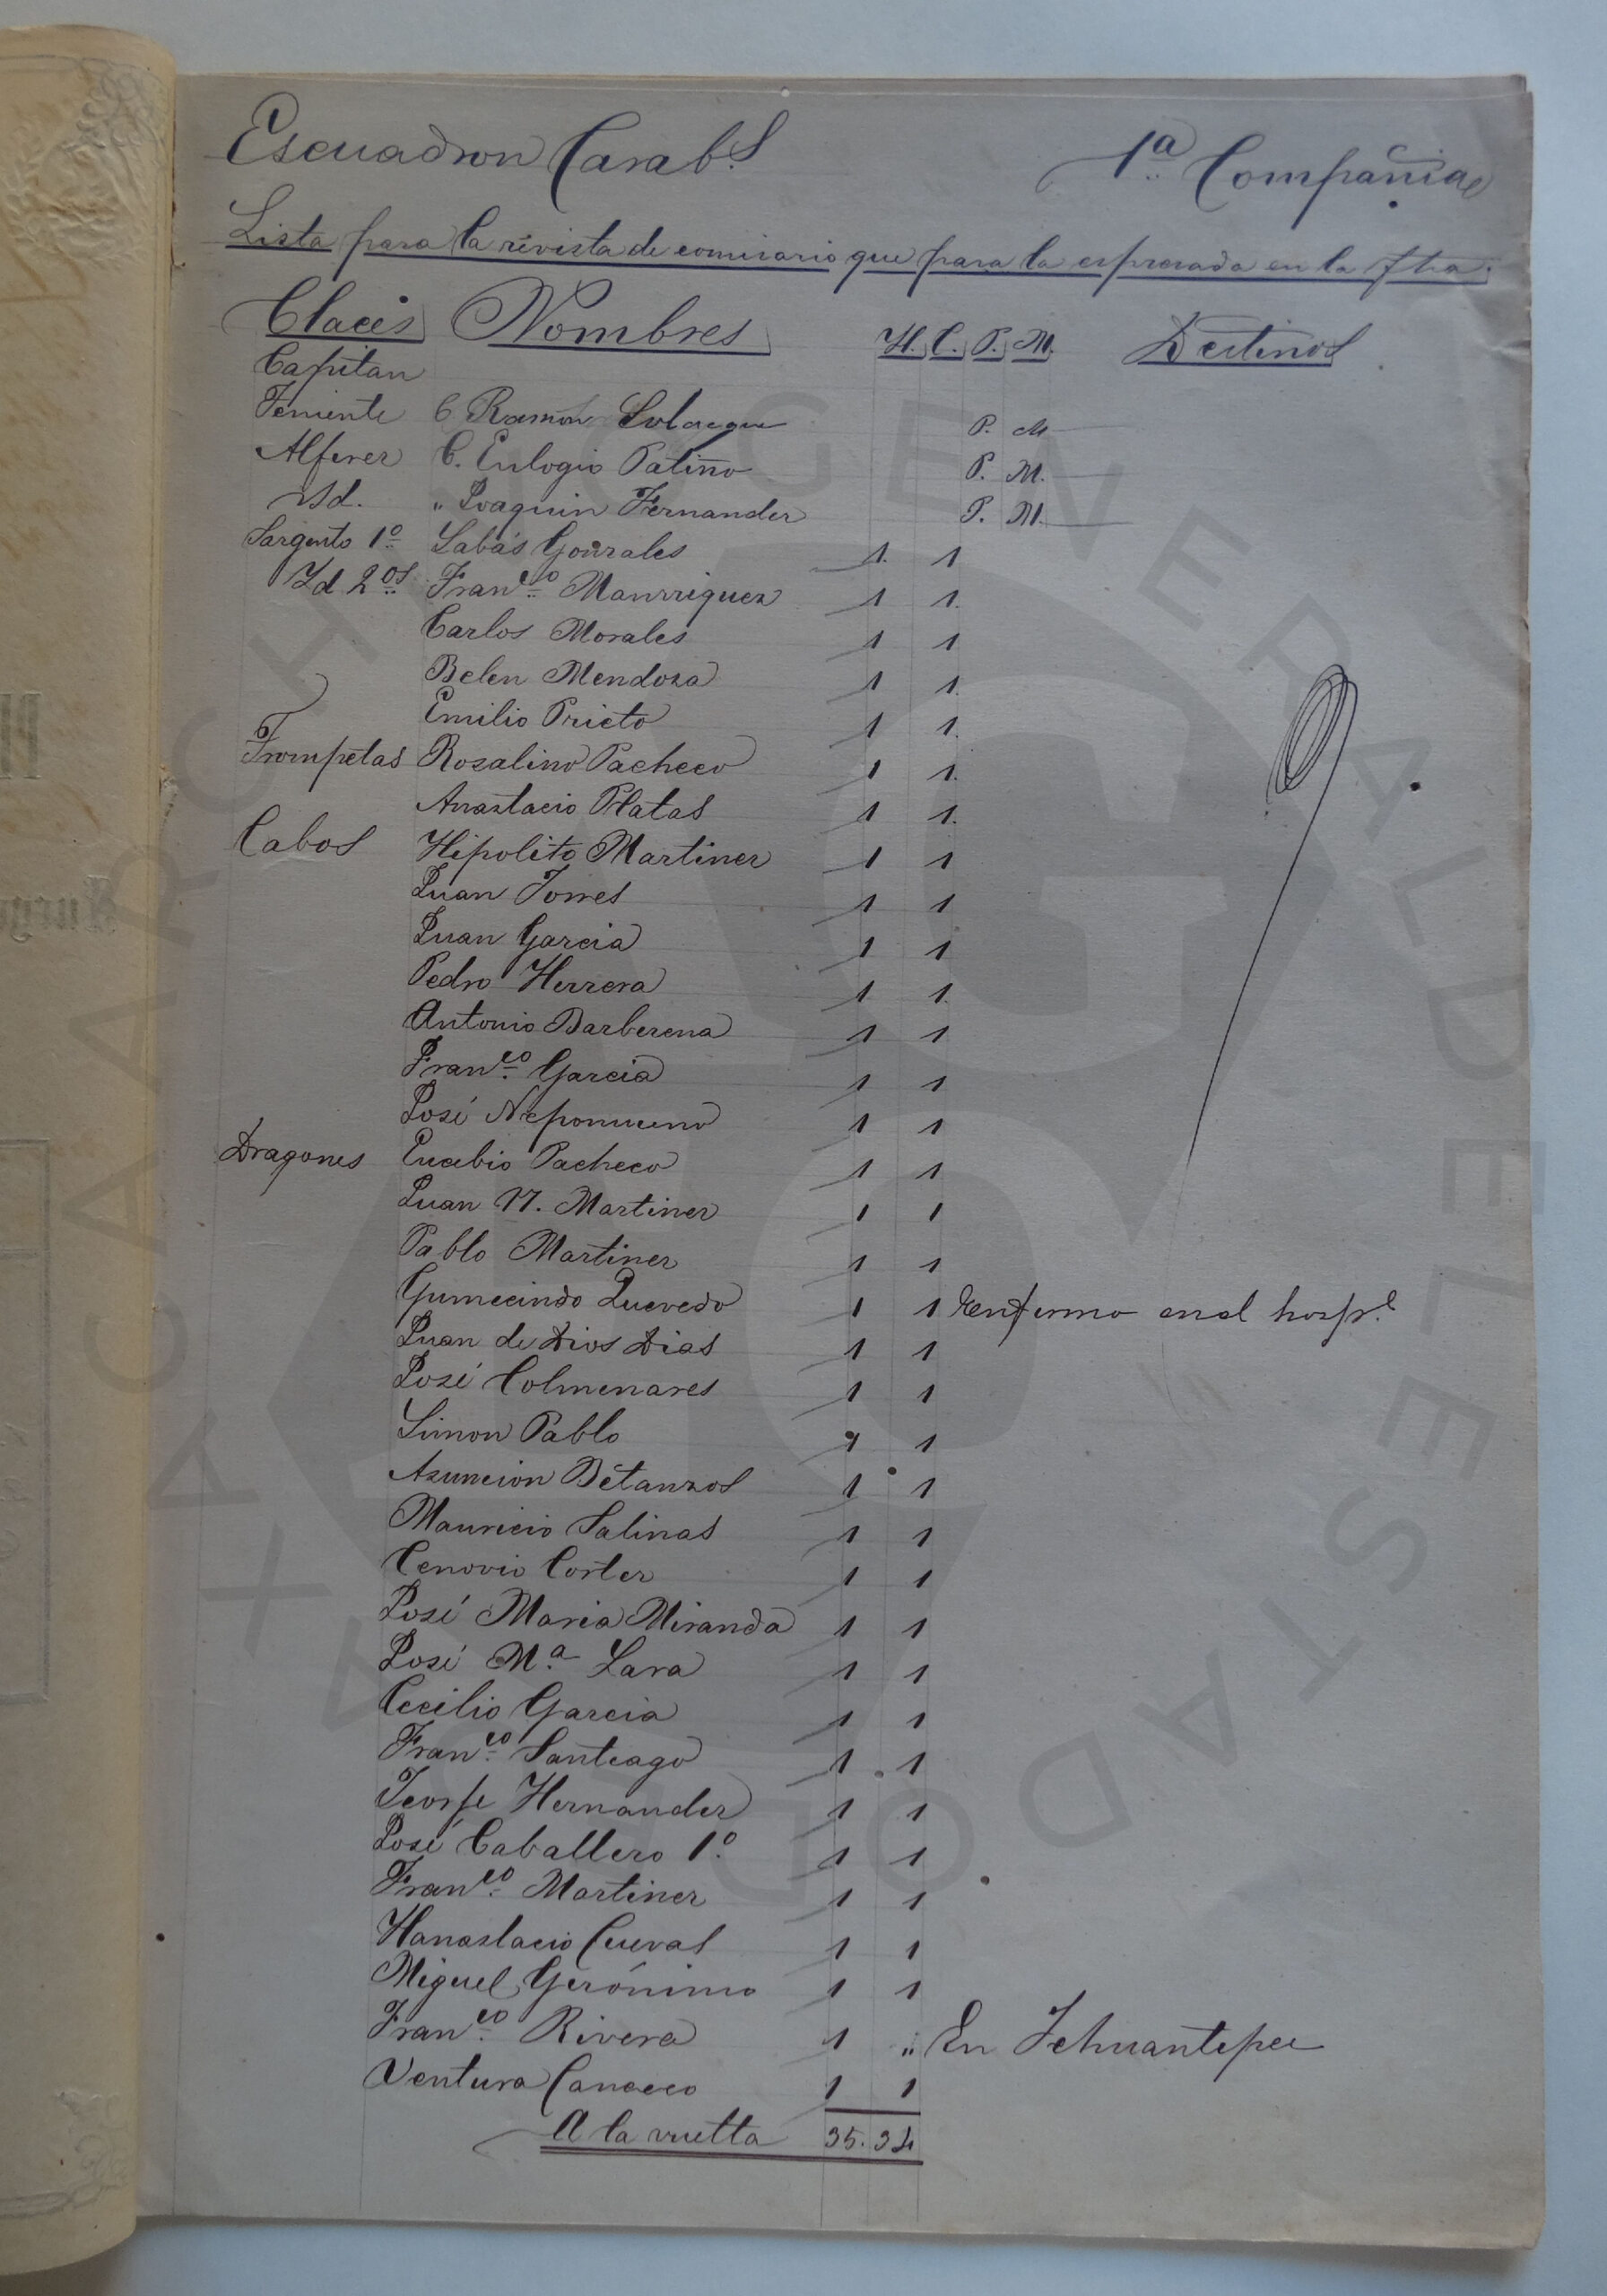 Escuadron Carab.s 1.a Compañia
Lista para la revista de comisario que para la espresada en la fha.
Claces Nombres H. C. P. M. Destinos
Capitan
Teniente C Ramon P. M
Alferez C. Eulogio Patiño P. M.
Id. " Joaquin Fernandez P. M.
Sargento 1º Sabás Gonzales 1. 1
Id 2.os Fran.co Manrriquez 1 1.
Carlos Morales 1 1
Belen Mendoza 1 1.
Emilio Prieto 1 1.
Trompetas Rosalino Pacheco 1 1.
Anastacio Platas 1 1.
Cabos Hipolito Martinez 1 1
Juan Torres 1 1
Juan Garcia 1 1
Pedro Herrera 1 1.
Antonio Barberena 1 1
Fran.co Garcia 1 1
José Nepomuceno 1 1
Dragones Eucebio Pacheco 1 1
Juan N. Martinez 1 1
Pablo Martinez 1 1
Gumecindo Quevedo 1 1 Enfermo en el hosp.l
Juan de Dios Dias 1 1
José Colmenares 1 1
Simon Pablo 1 1
Asuncion Betanzos 1 1
Mauricio Salinas 1 1
Cenovio Cortez 1 1
José Maria Miranda 1 1
José M.a Lara 1 1
Cecilio Garcia 1 1
Fran.co Santiago 1 1
Teorfe Hernandez 1 1
José Caballero 1.º 1 1
Fran.co Martinez 1 1
Hanastacio Cuevas 1 1
Miguel Gerónimo 1 1
Fran.co Rivera 1 " En Tehuantepec
Ventura Canceco 1 1
A la vuelta 35. 34